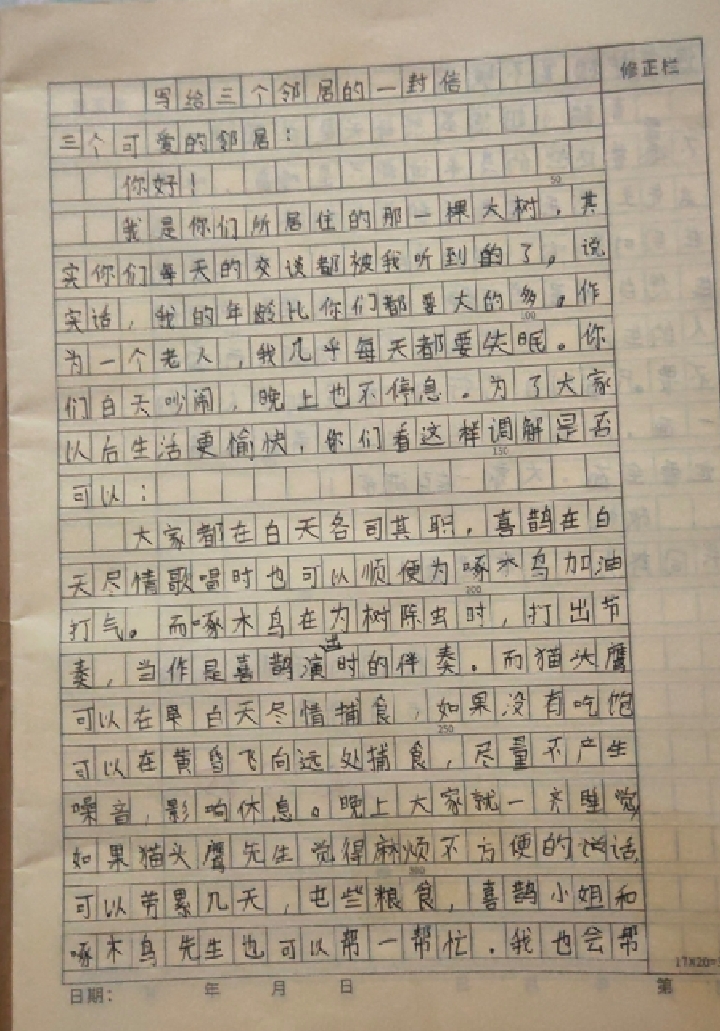 修正栏
写给三个邻居的一封信
三个可爱的邻居：
你好！
50
我是你们所居住的那一棵大树，其
实你们每天的交谈都被我听到的了。说
实话，我的年龄比你们都要大的多。作
100
为一个老人，我几乎每天都要失眠。你
们白天吵闹，晚上也不停息。为了大家
以后生活更愉快，你们看这样调解是否
150
可以：
大家都在白天各司其职，喜鹊在白
天尽情歌唱时也可以顺便为啄木鸟加油
200
打气。而啄木鸟在为树除虫时，打出节
奏，当作是喜鹊演出时的伴奏。而猫头鹰
可以在白天尽情捕食，如果没有吃饱
250
可以在黄昏飞向远处捕食，尽量不产生
噪音，影响休息。晚上大家就一齐睡觉，
如果猫头鹰先生觉得麻烦不方便的说话，
300
可以劳累几天，屯些粮食，喜鹊小姐和
啄木鸟先生也可以帮一帮忙。我也会帮
17×20=
日期： 年 月 日 第